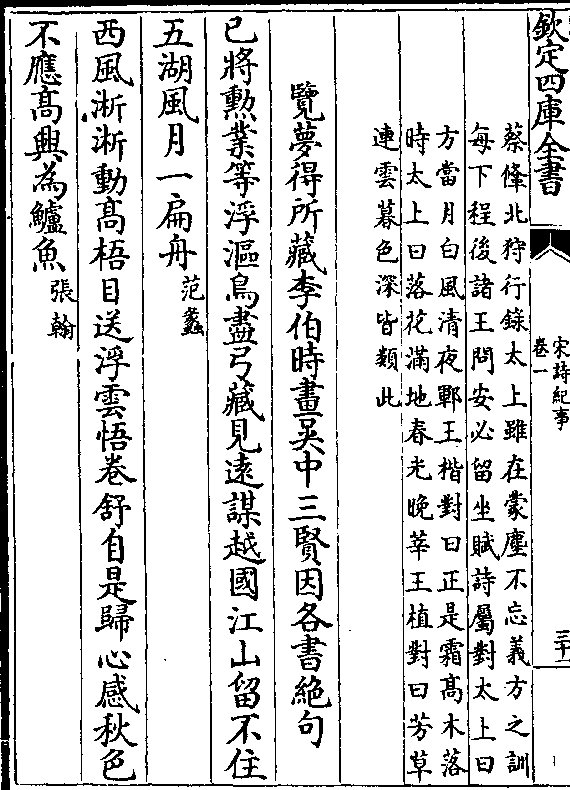 欽定四庫全書
宋詩紀事
卷一
三十一
蔡絛北狩行錄太上雖在蒙塵不忘義方之訓
每下程後諸王問安必留坐賦詩屬對太上曰
方當月白風清夜鄆王楷對曰正是霜髙木落
時太上曰落花滿地春光晚莘王植對曰芳草
連雲暮色深皆類此
覽夢得所藏李伯時畫吳中三賢因各書絶句
已將勲業等浮漚鳥盡弓藏見逺謀越國江山留不住
五湖風月一扁舟范蠡
西風淅淅動髙梧目送浮雲悟卷舒自是歸心感秋色
不應髙興為鱸魚張翰